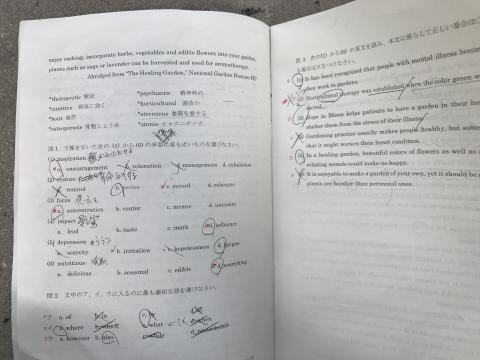 enjoy cooking, incorporate herbs, vegetables and edible flowers into your garden,
plants such as sage or lavender can be harvested and used for aromatherapy.
Abridged from "The Healing Garden," National Garden Bureau
*therapeutic 療法 *psychiatric 精神科の
*curative 病気に効く *horticultural 園芸の
*boot 長靴 *strenuous 激闘を要する
*osteoporosis 骨粗しょう症 *zinnias ヒャクニチソウ
問1. 下線を引いた次の (1) から (6) の単語に最も近いものを選びなさい。
(1) inspiration
a. encouragement b. relaxation c. management d. exhibition
(2) restore
a. remind b. revive c. record d. release
(3) focus
a. concentration b. center c. means d. intensity
(4) impact 衝撃
a. lead b. taste c. mark d. influence
(5) depression
a. scarcity b. irritation c. hopelessness d. fatigue
(6) nutritious
a. delicious b. seasonal c. edible d. nourishing
問2 文中のア、イ、ウに入るのに最も適切な語を選びなさい。
ア a. of b. in c. by
イ a. where b. which c. what d. when
ウ a. however b. also c. while d. nevertheless
問3 次の(1) から(6) の英文を読み、本文に照らして正しい場合は
場合は×をつけなさい。
(1) It has been recognized that people with mental illness become
they work in gardens.
(2) Horticultural therapy was established when the color green w
(3) Hope in Bloom helps patients to have a garden in their ho
shelter them from the stress of their illness.
(4) Gardening practice usually makes people healthy, but som
that it might worsen their heart condition.
(5) In a healing garden, beautiful colors of flowers as well as
relaxing sounds could make us happy.
(6) It is enjoyable to make a garden of your own, yet it should be
plants are hardier than perennial ones.